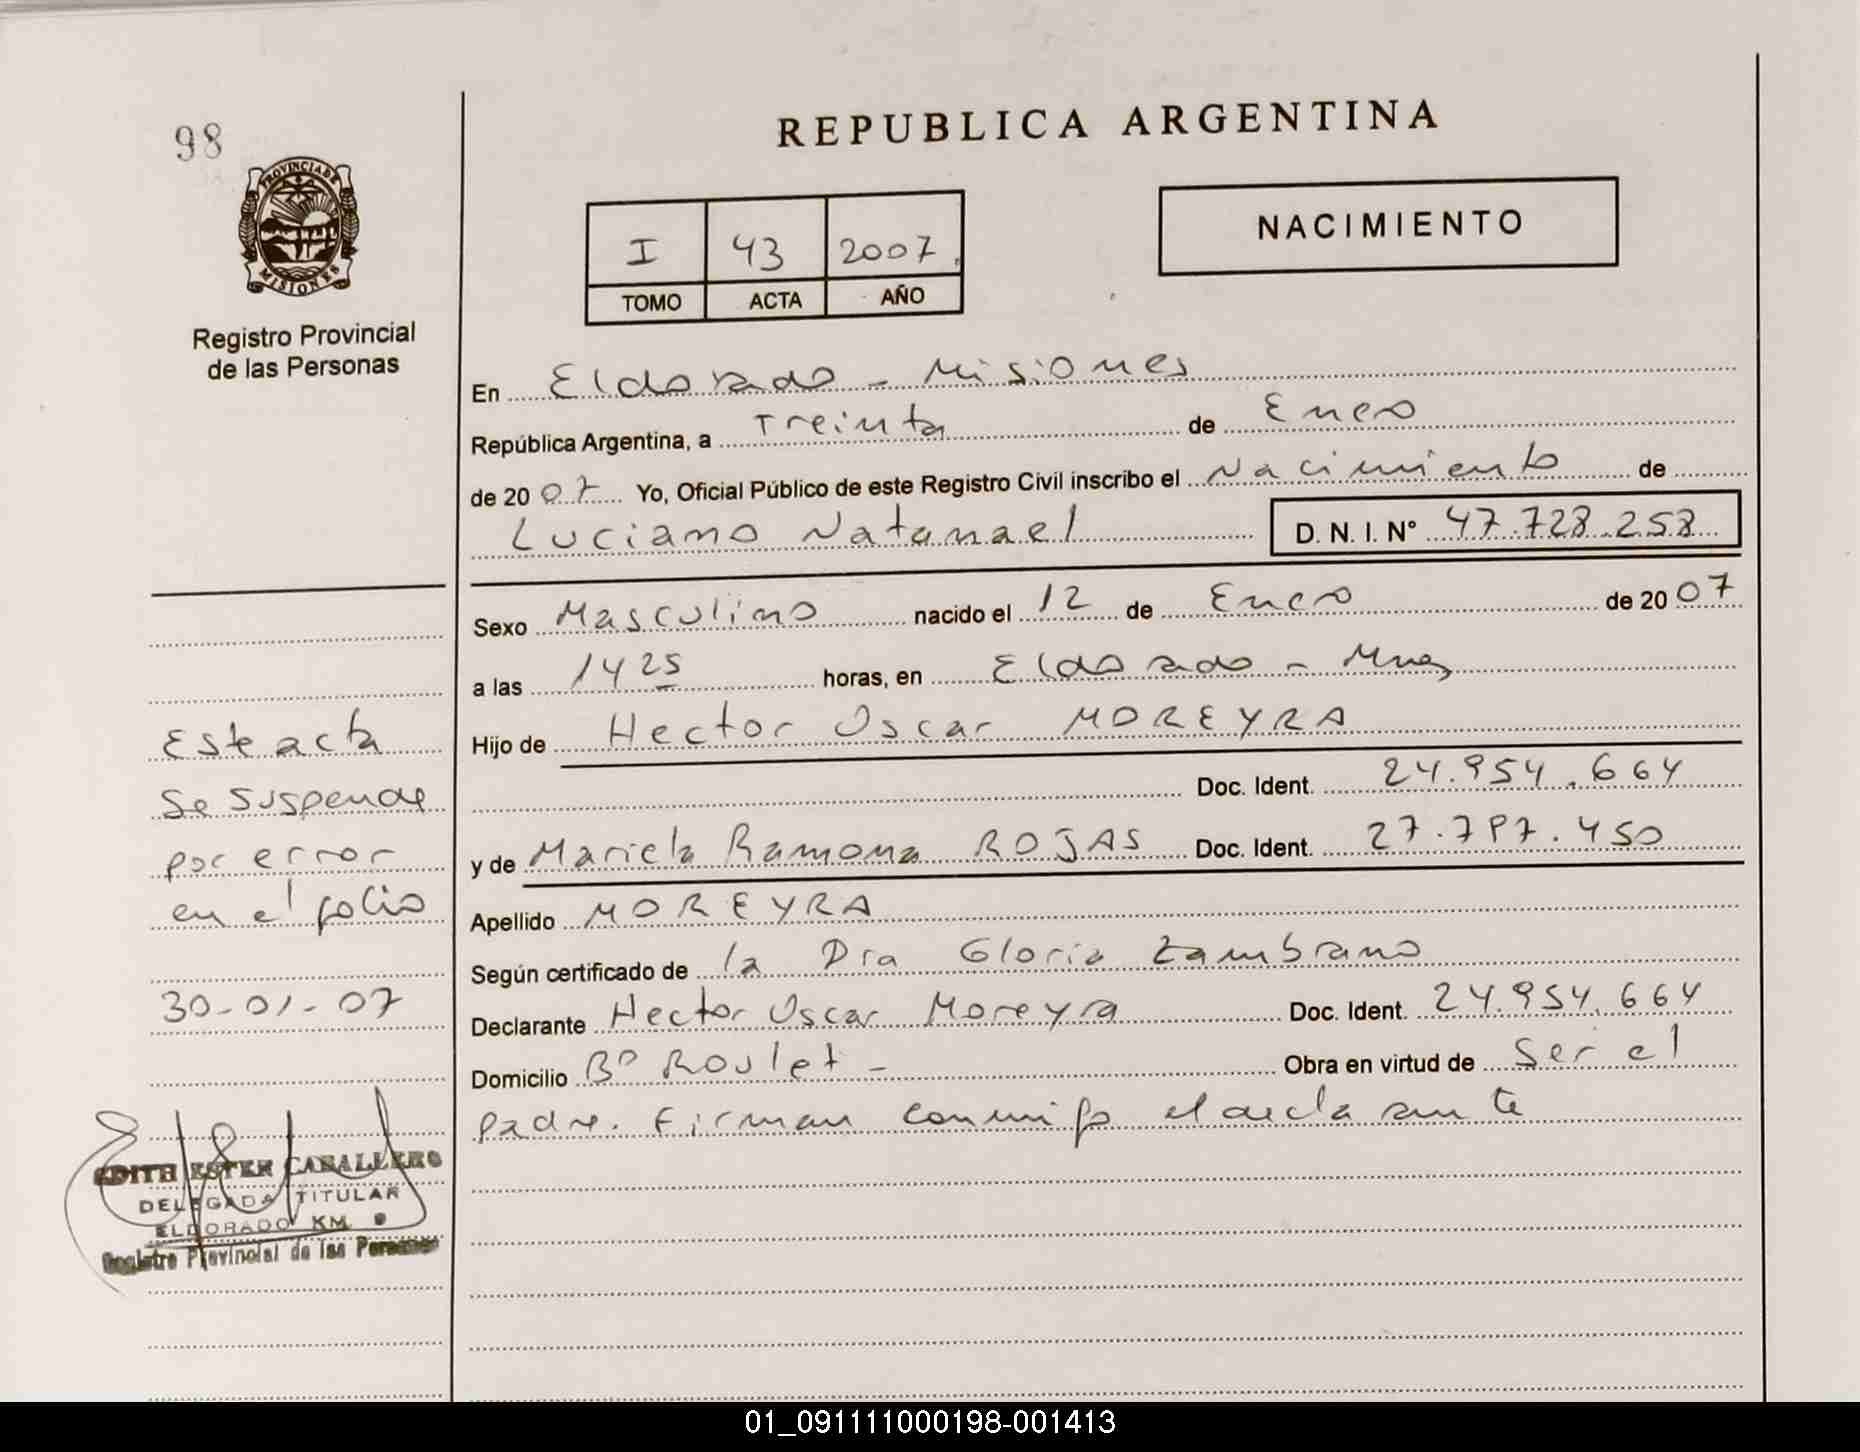 98
REPUBLICA ARGENTINA
PROVINCIA DE
MISIONES
Registro Provincial
de las Personas
I 43 2007
TOMO ACTA AÑO
NACIMIENTO
En Eldorado - Misiones
República Argentina, a Treinta de Enero
de 2007 Yo, Oficial Público de este Registro Civil inscribo el Nacimiento de
Luciano Natanael D. N. I. N° 47.728.258
Sexo Masculino nacido el 12 de Enero de 2007
a las 14 25 horas, en Eldorado - Mnes
Hijo de Hector Oscar MOREYRA
Doc. Ident. 24.954.664
y de Mariela Ramona ROJAS Doc. Ident. 27.797.450
Apellido MOREYRA
Según certificado de la Dra Gloria Zambrano
Declarante Hector Oscar Moreyra Doc. Ident. 24.954.664
Domicilio B° Roulet - Obra en virtud de Ser el
padre. Firman conmigo el declarante
Este acta
se suspende
por error
en el folio
30-01-07
EDITH ESTER CABALLERO
DELEGADA TITULAR
ELDORADO KM.
Registro Provincial de las Personas
01_091111000198-001413